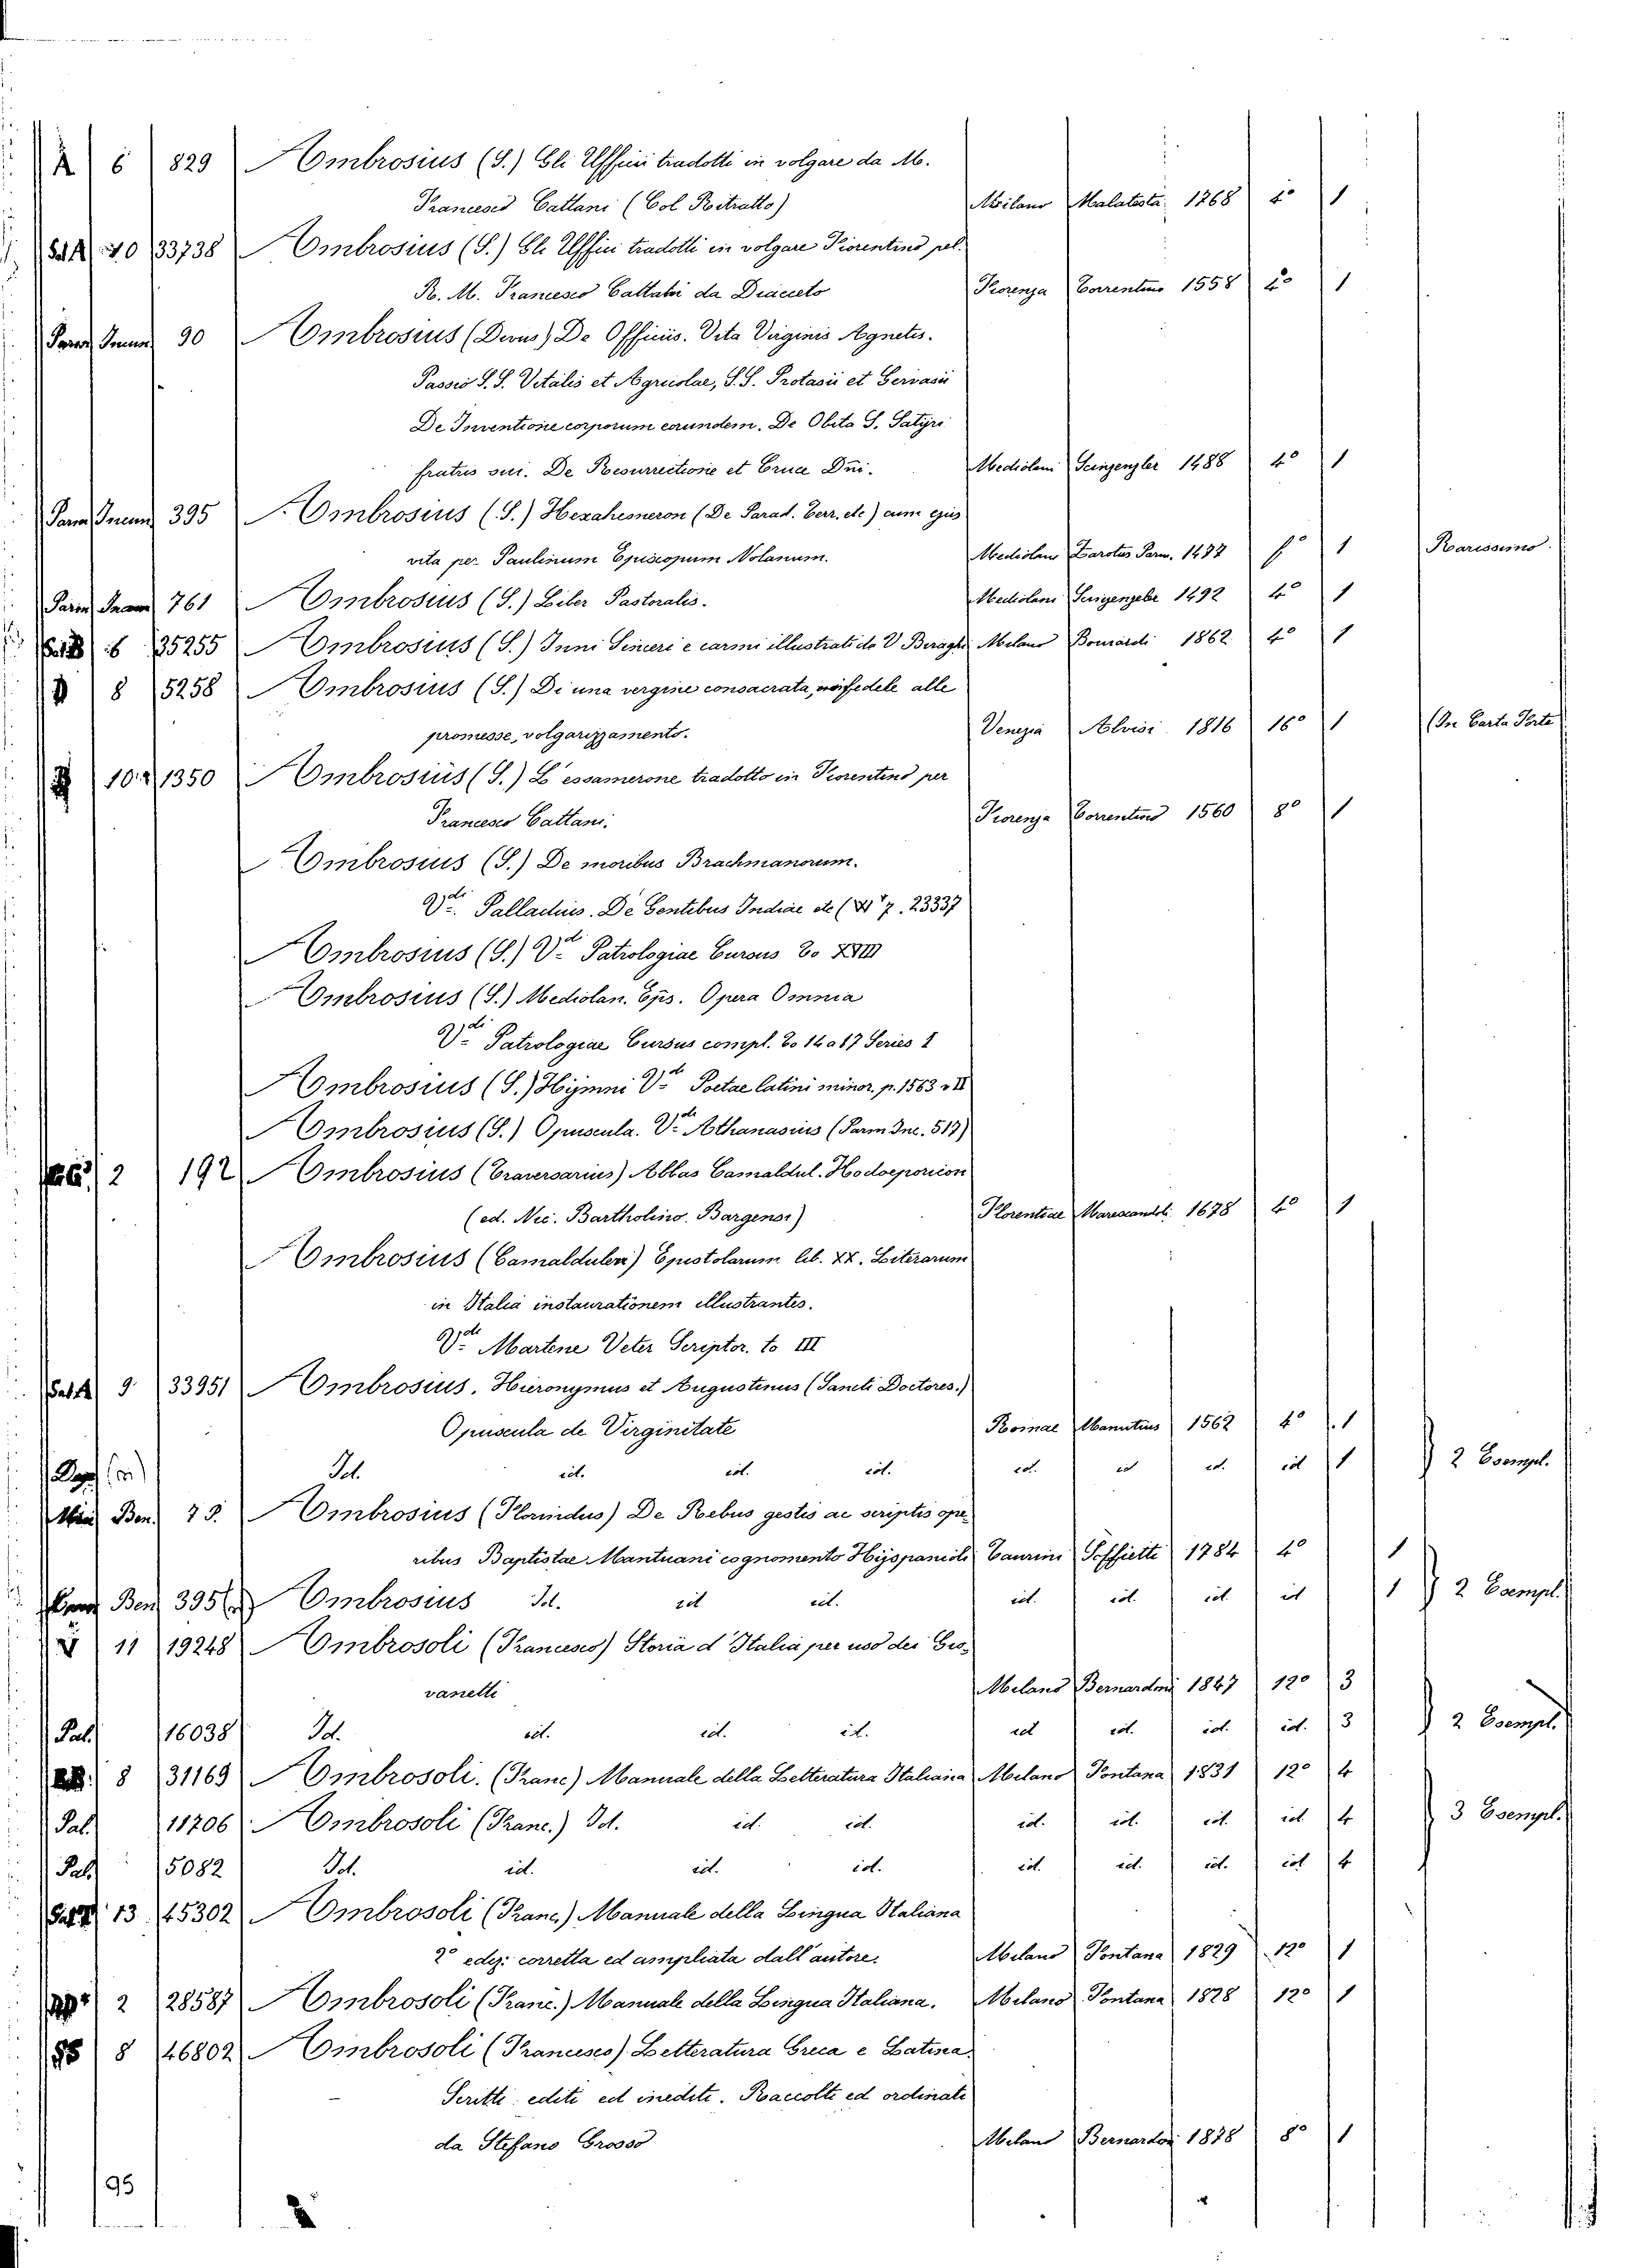 A 6 829 Ambrosius (S.) Gli Uffici tradotti in volgare da M.
Francesco Cattani (Col Ritratto) Milano Malatesta 1768 4° 1
Sal. A 10 33738 Ambrosius (S.) Gli Uffici tradotti in volgare Fiorentino pel
R. M. Francesco Cattani da Diacceto Fiorenza Torrentino 1558 4° 1
Parm. Incun. 90 Ambrosius (Divus) De Officiis. Vita Virginis Agnetis.
Passio S. S. Vitalis et Agricolae, S. S. Protasii et Gervasii
De Inventione corporum eorundem. De Obitu S. Satyri
fratris sui. De Resurrectione et Cruce Dñi. Mediolani Scinzenzler 1488 4° 1
Parm. Incun. 395 Ambrosius (S.) Hexahemeron (De Parad. Terr. etc) cum ejus
vita per Paulinum Episcopum Nolanum. Mediolani Zarotus Parm. 1477 f° 1 Rarissimo.
Parm. Incun. 761 Ambrosius (S.) Liber Pastoralis. Mediolani 1492 4° 1
6 35255 Ambrosius (S.) Inni Sinceri e carmi illustrati da Milano 1862 4° 1
8 5258 Ambrosius (S.) Di una vergine consacrata, infedele alle
promesse, volgarizzamento. Venezia Alvisi 1816 16° 1 (In Carta Forte
10 1350 Ambrosius (S.) L'essamerone tradotto in Fiorentino per
Francesco Cattani. Fiorenza Torrentino 1560 8° 1
Ambrosius (S.) De moribus Brachmanorum.
Vdi. Palladius. De Gentibus Indiae etc ( 7. 23337
Ambrosius (S.) Vdi Patrologiae Cursus To XVIII
Ambrosius (S.) Mediolan. Eps. Opera Omnia
Vdi Patrologiae Cursus compl. To 14 a 17 Series I
Ambrosius (S.) Hymni Vdi Poetae latini minor. p. 1563 v II
Ambrosius (S.) Opuscula. Vdi Athanasius (Parm Inc. 517)
2 192 Ambrosius (Traversarius) Abbas Camaldul. Hodoeporicon
(ed. Nic. Bartholino Bargensi) Florentiae Marescandoli 1678 4° 1
Ambrosius (Camalduleñ) Epistolarum lib. XX. Literarum
in Italia instaurationem illustrantes.
Vdi Martene Veter Scriptor. to III
Sal. A 9 33951 Ambrosius, Hieronymus et Augustinus (Sancti Doctores.)
Opuscula de Virginitate Romae Manutius 1562 4° 1
Id. id. id. id. id. id id. id 1 2 Esempl.
Min Ben. 78. Ambrosius (Florindus) De Rebus gestis ac scriptis ope-
ribus Baptistae Mantuani cognomento Hyspanioli Taurini Soffietti 1784 4° 1
Ben. 395 Ambrosius Id. id id. id. id. id. id 1 2 Esempl.
11 19248 Ambrosoli (Francesco) Storia d'Italia per uso dei Gio-
vanetti Milano Bernardoni 1847 12° 3
Pal. 16038 Id. id. id. id. id id. id. id. 3 2 Esempl.
8 31169 Ambrosoli. (Franc) Manuale della Letteratura Italiana Milano Fontana 1831 12° 4
Pal. 11706 Ambrosoli (Franc.) Id. id. id. id. id. id. id 4 3 Esempl.
Pal. 5082 Id. id. id. id. id. id. id. id 4
13 45302 Ambrosoli (Franc.) Manuale della Lingua Italiana
2° ediz: corretta ed ampliata dall'autore. Milano Fontana 1829 12° 1
2 28587 Ambrosoli (Franc.) Manuale della Lingua Italiana. Milano Fontana 1828 12° 1
8 46802 Ambrosoli (Francesco) Letteratura Greca e Latina.
Scritti editi ed inediti. Raccolti ed ordinati
da Stefano Grosso Milano Bernardoni 1878 8° 1
95